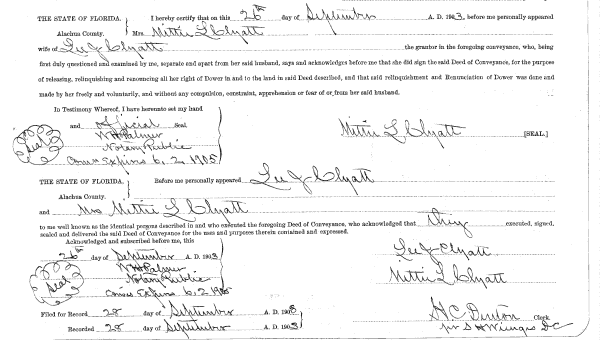 THE STATE OF FLORIDA. I hereby certify that on this 26th day of September A. D. 1903, before me personally appeared
Alachua County. Mrs Mittie L Clyatt
wife of Lee J Clyatt the grantor in the foregoing conveyance, who, being
first duly questioned and examined by me, separate and apart from her said husband, says and acknowledges before me that she did sign the said Deed of Conveyance, for the purpose
of releasing, relinquishing and renouncing all her right of Dower in and to the land in said Deed described, and that said relinquishment and Renunciation of Dower was done and
made by her freely and voluntarily, and without any compulsion, constraint, apprehension or fear of or from her said husband.
In Testimony Whereof, I have hereunto set my hand
and official seal
Seal W H Palmer Mittie L Clyatt [SEAL.]
Notary Public
Coms Expires 6, 2 1905
THE STATE OF FLORIDA. Before me personally appeared Lee J Clyatt
Alachua County.
and Mrs Mittie L Clyatt
to me well known as the identical persons described in and who executed the foregoing Deed of Conveyance, who acknowledged that they executed, signed,
sealed and delivered the said Deed of Conveyance for the uses and purposes therein contained and expressed.
Acknowledged and subscribed before me, this
26th day of September A. D. 1903 Lee J Clyatt
Seal W H Palmer
Notary Public Mittie L Clyatt
Coms Expires 6, 2 1905
Filed for Record 28 day of September A. D. 1903 H C Denton Clerk
Recorded 28 day of September A. D. 1903 per S H Wienges D C